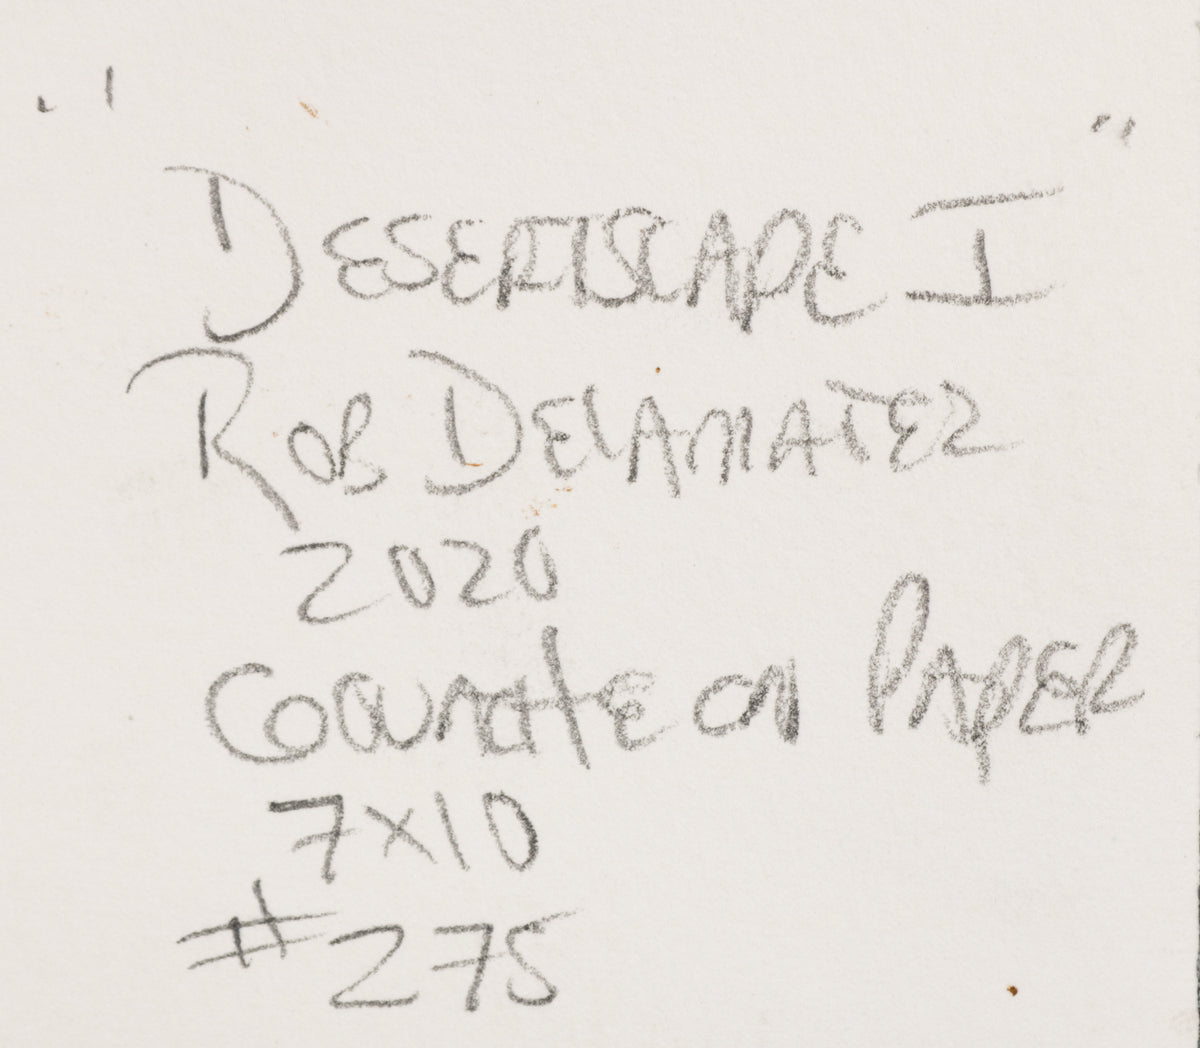 "DESERTSCAPE I"
ROB DELAMATER
2020
GOUACHE ON PAPER
7x10
#275